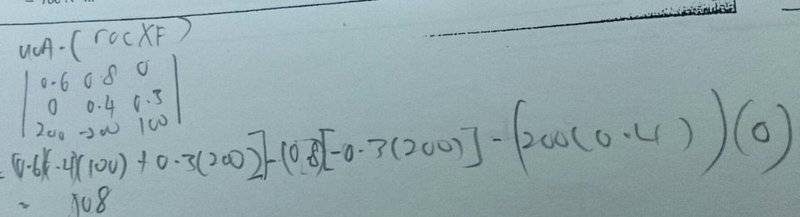 UOA·(rOCXF)
| 0.6 0.8 0 |
| 0 0.4 0.3 |
| 200 -200 100 |
= (0.6)[(.4)(100) + 0.3(200)] - (0.8)[-0.3(200)] - (200(0.4))(0)
= 108